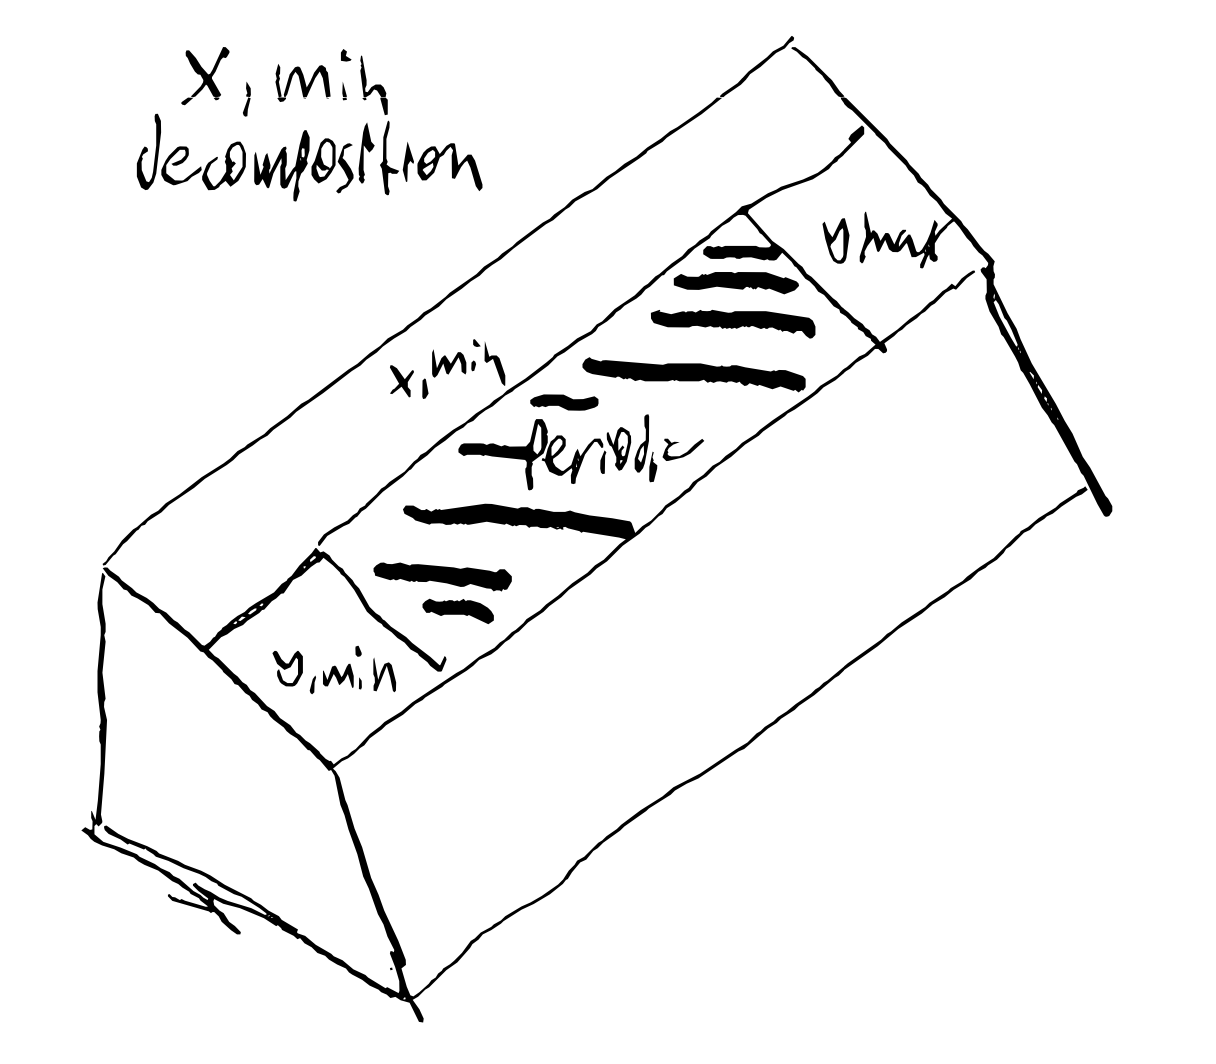 x, min
decomposition
y max
x, min
Periodic
y, min